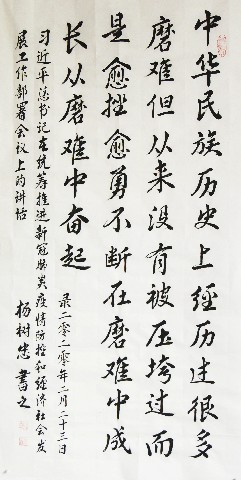 中华民族历史上经历过很多
磨难但从来没有被压垮过而
是愈挫愈勇不断在磨难中成
长从磨难中奋起
录二零二零年二月二十三日
习近平总书记在统筹推进新冠肺炎疫情防控和经济社会发
展工作部署会议上的讲话
杨树忠书之